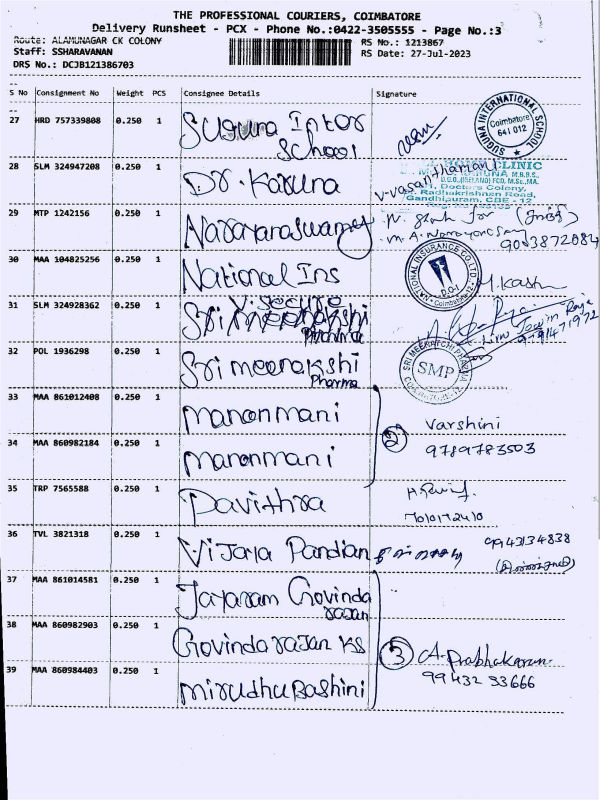 THE PROFESSIONAL COURIERS, COIMBATORE
Delivery Runsheet - PCX - Phone No.:0422-3505555 - Page No.:3
Route: ALAMUNAGAR CK COLONY
RS No.: 1213867
Staff: SSHARAVANAN
RS Date: 27-Jul-2023
DRS No.: DCJB121386703
S No Consignment No Weight PCS Consignee Details Signature
27 HRD 757339808 0.250 1 Suguna Inter School
SUGUNA INTERNATIONAL SCHOOL
Coimbatore
641 012
28 SLM 324947208 0.250 1 Dr. Karuna
V. Vasanthamani
CLINIC
Doctors Colony,
Radhakrishnan Road,
Gandhipuram, CBE - 12.
29 MTP 1242156 0.250 1 Narayanaswamy
for
9003872084
30 MAA 104825256 0.250 1 National Ins
NATIONAL INSURANCE CO LTD
D.O.I
Coimbatore
M. Kash
31 SLM 324928362 0.250 1 V. Secure
32 POL 1936298 0.250 1 Sri meenakshi Pharma
SRI MEENATCHI PHARMA
SMP
33 MAA 861012408 0.250 1 manonmani
34 MAA 860982184 0.250 1 manonmani
2 Varshini
9789783503
35 TRP 7565588 0.250 1 Pavithra
7010172410
36 TVL 3821318 0.250 1 Vijaya Pandian
9943134838
37 MAA 861014581 0.250 1 Jayaram Govinda rajan
38 MAA 860982903 0.250 1 Govindarajan KS
39 MAA 860984403 0.250 1 mirudhu Bashini
3 A. Prabhakaran
99432 93666